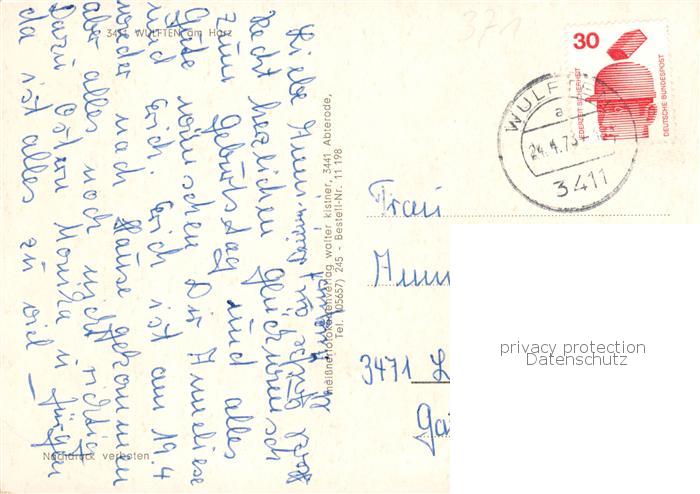 3411 WULFTEN am Harz
371
30
JEDERZEIT SICHERHEIT
DEUTSCHE BUNDESPOST
WULF
a
24.4.73
3411
Liebe
Recht herzlichen Glückwunsch
zum Geburtstag und alles
Gute wünschen Dir Anneliese
und Erich. Erich ist am 19.4
wieder nach Hause gekommen
aber alles noch nicht richtig
Dazu Ostern Monika u Jürgen
da ist alles zu viel
meißnerfotokartenverlag walter kistner, 3441 Abterode,
Tel. (05657) 245 - Bestell-Nr. 11 198
Frau
3471
privacy protection
Datenschutz
Nachdruck verboten